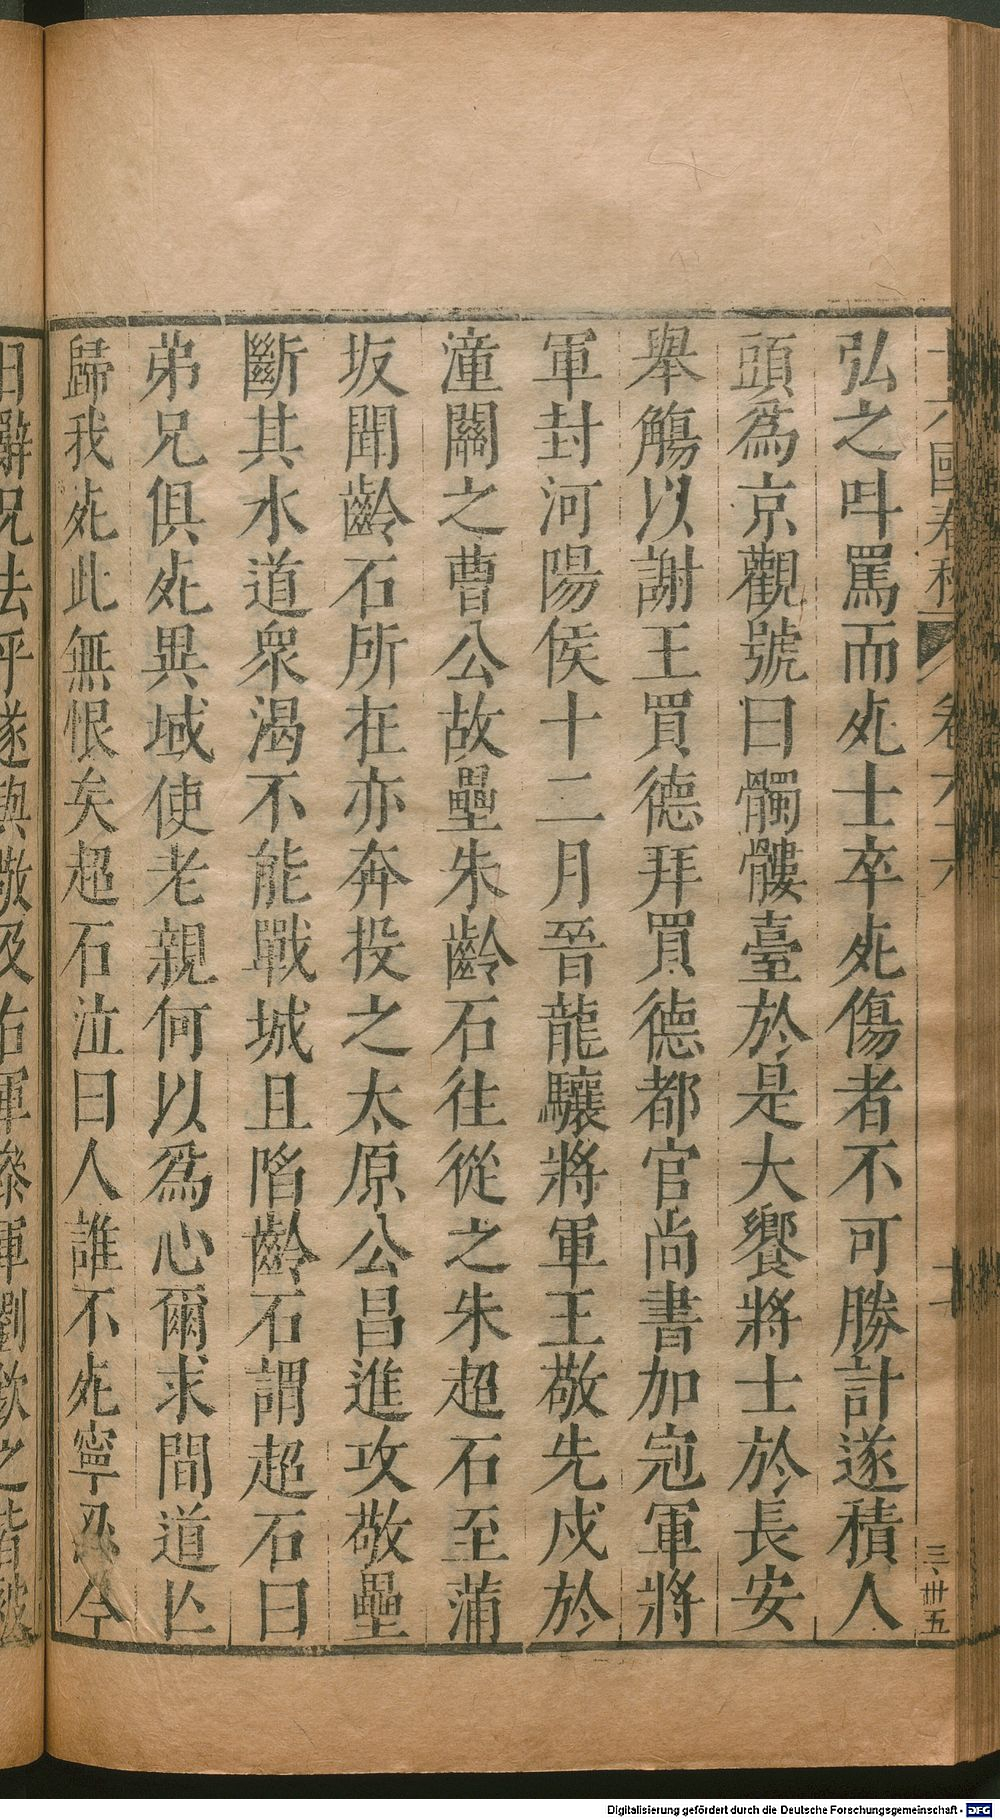 弘之叫罵而死士卒死傷者不可勝計遂積人
頭為京觀號曰髑髏臺於是大饗將士於長安
舉觴以謝王買德拜買德都官尚書加冠軍將
軍封河陽侯十二月晉龍驤將軍王敬先戍於
潼關之曹公故壘朱齡石往從之朱超石至蒲
坂聞齡石所在亦奔投之太原公昌進攻敬壘
斷其水道衆渴不能戰城且陷齡石謂超石曰
弟兄俱死異域使老親何以為心爾求間道亡
歸我死此無恨矣超石泣曰人誰不死寧忍今
日辭兄去乎遂與敬及右軍參軍劉欽之皆被
國春秋
三卅五
Digitalisierung gefördert durch die Deutsche Forschungsgemeinschaft - DFG